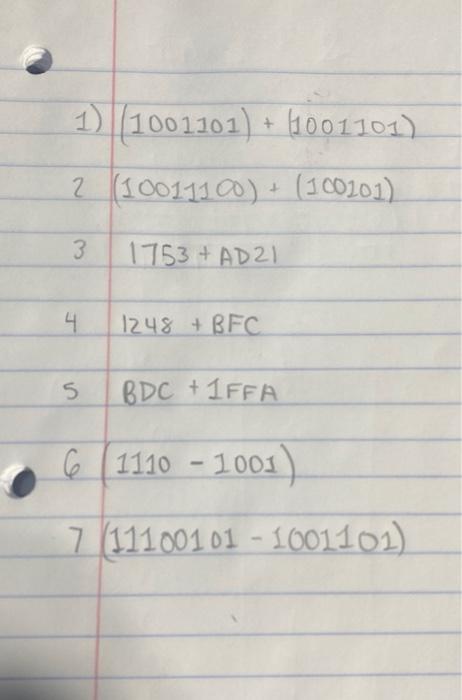 1) (1001101) + (1001101)
2 (10011100) + (100101)
3 1753 + AD21
4 1248 + BFC
5 BDC + 1FFA
6 (1110 - 1001)
7 (11100101 - 1001101)